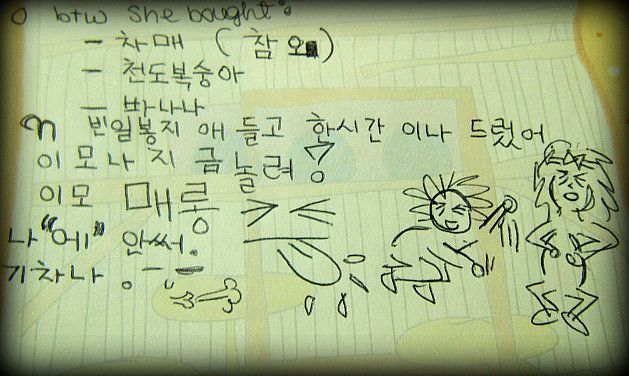 o btw She bought:
- 차매 (참오)
- 천도복숭아
- 바나나
빈일봉지 애 들고 한시간 이나 드렀어
이모나 지금놀려?
이모 매롱
나 "에" 안써.
기차나.